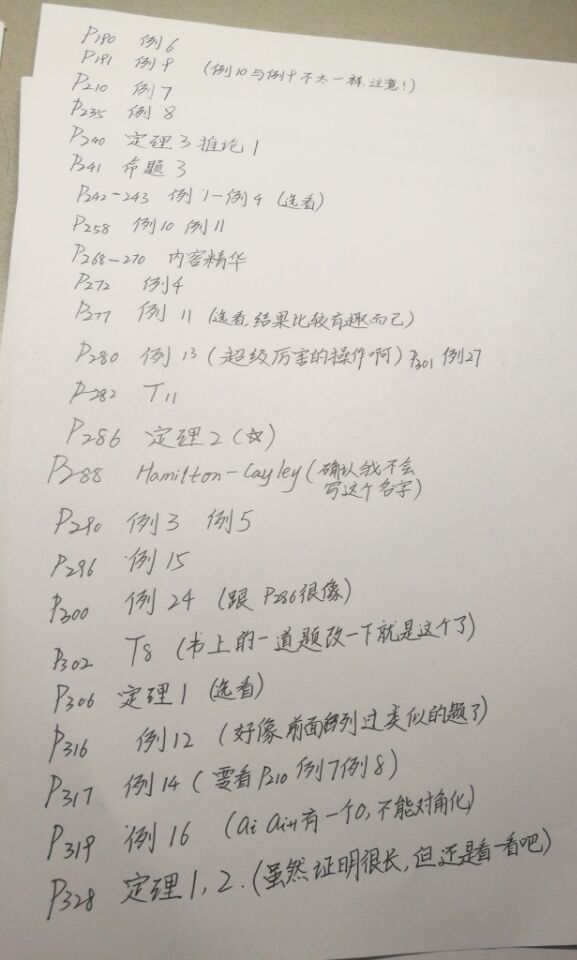 P190 例6
P191 例9 (例10与例9不太一样,注意!)
P210 例7
P235 例8
P240 定理3 推论1
P241 命题3
P242-243 例1-例4 (选看)
P258 例10 例11
P268-270 内容精华
P272 例4
P277 例11 (选看,结果比较有趣而已)
P280 例13 (超级厉害的操作啊) P301 例27
P282 T11
P286 定理2 (☆)
P288 Hamilton-Cayley (确认我不会
写这个名字)
P290 例3 例5
P296 例15
P300 例24 (跟P286很像)
P302 T8 (书上的一道题改一下就是这个了)
P306 定理1 (选看)
P316 例12 (好像前面列过类似的题了)
P317 例14 (要看P210 例7例8)
P319 例16 (ai ai+1有一个0,不能对角化)
P328 定理1,2.(虽然证明很长,但还是看一看吧)